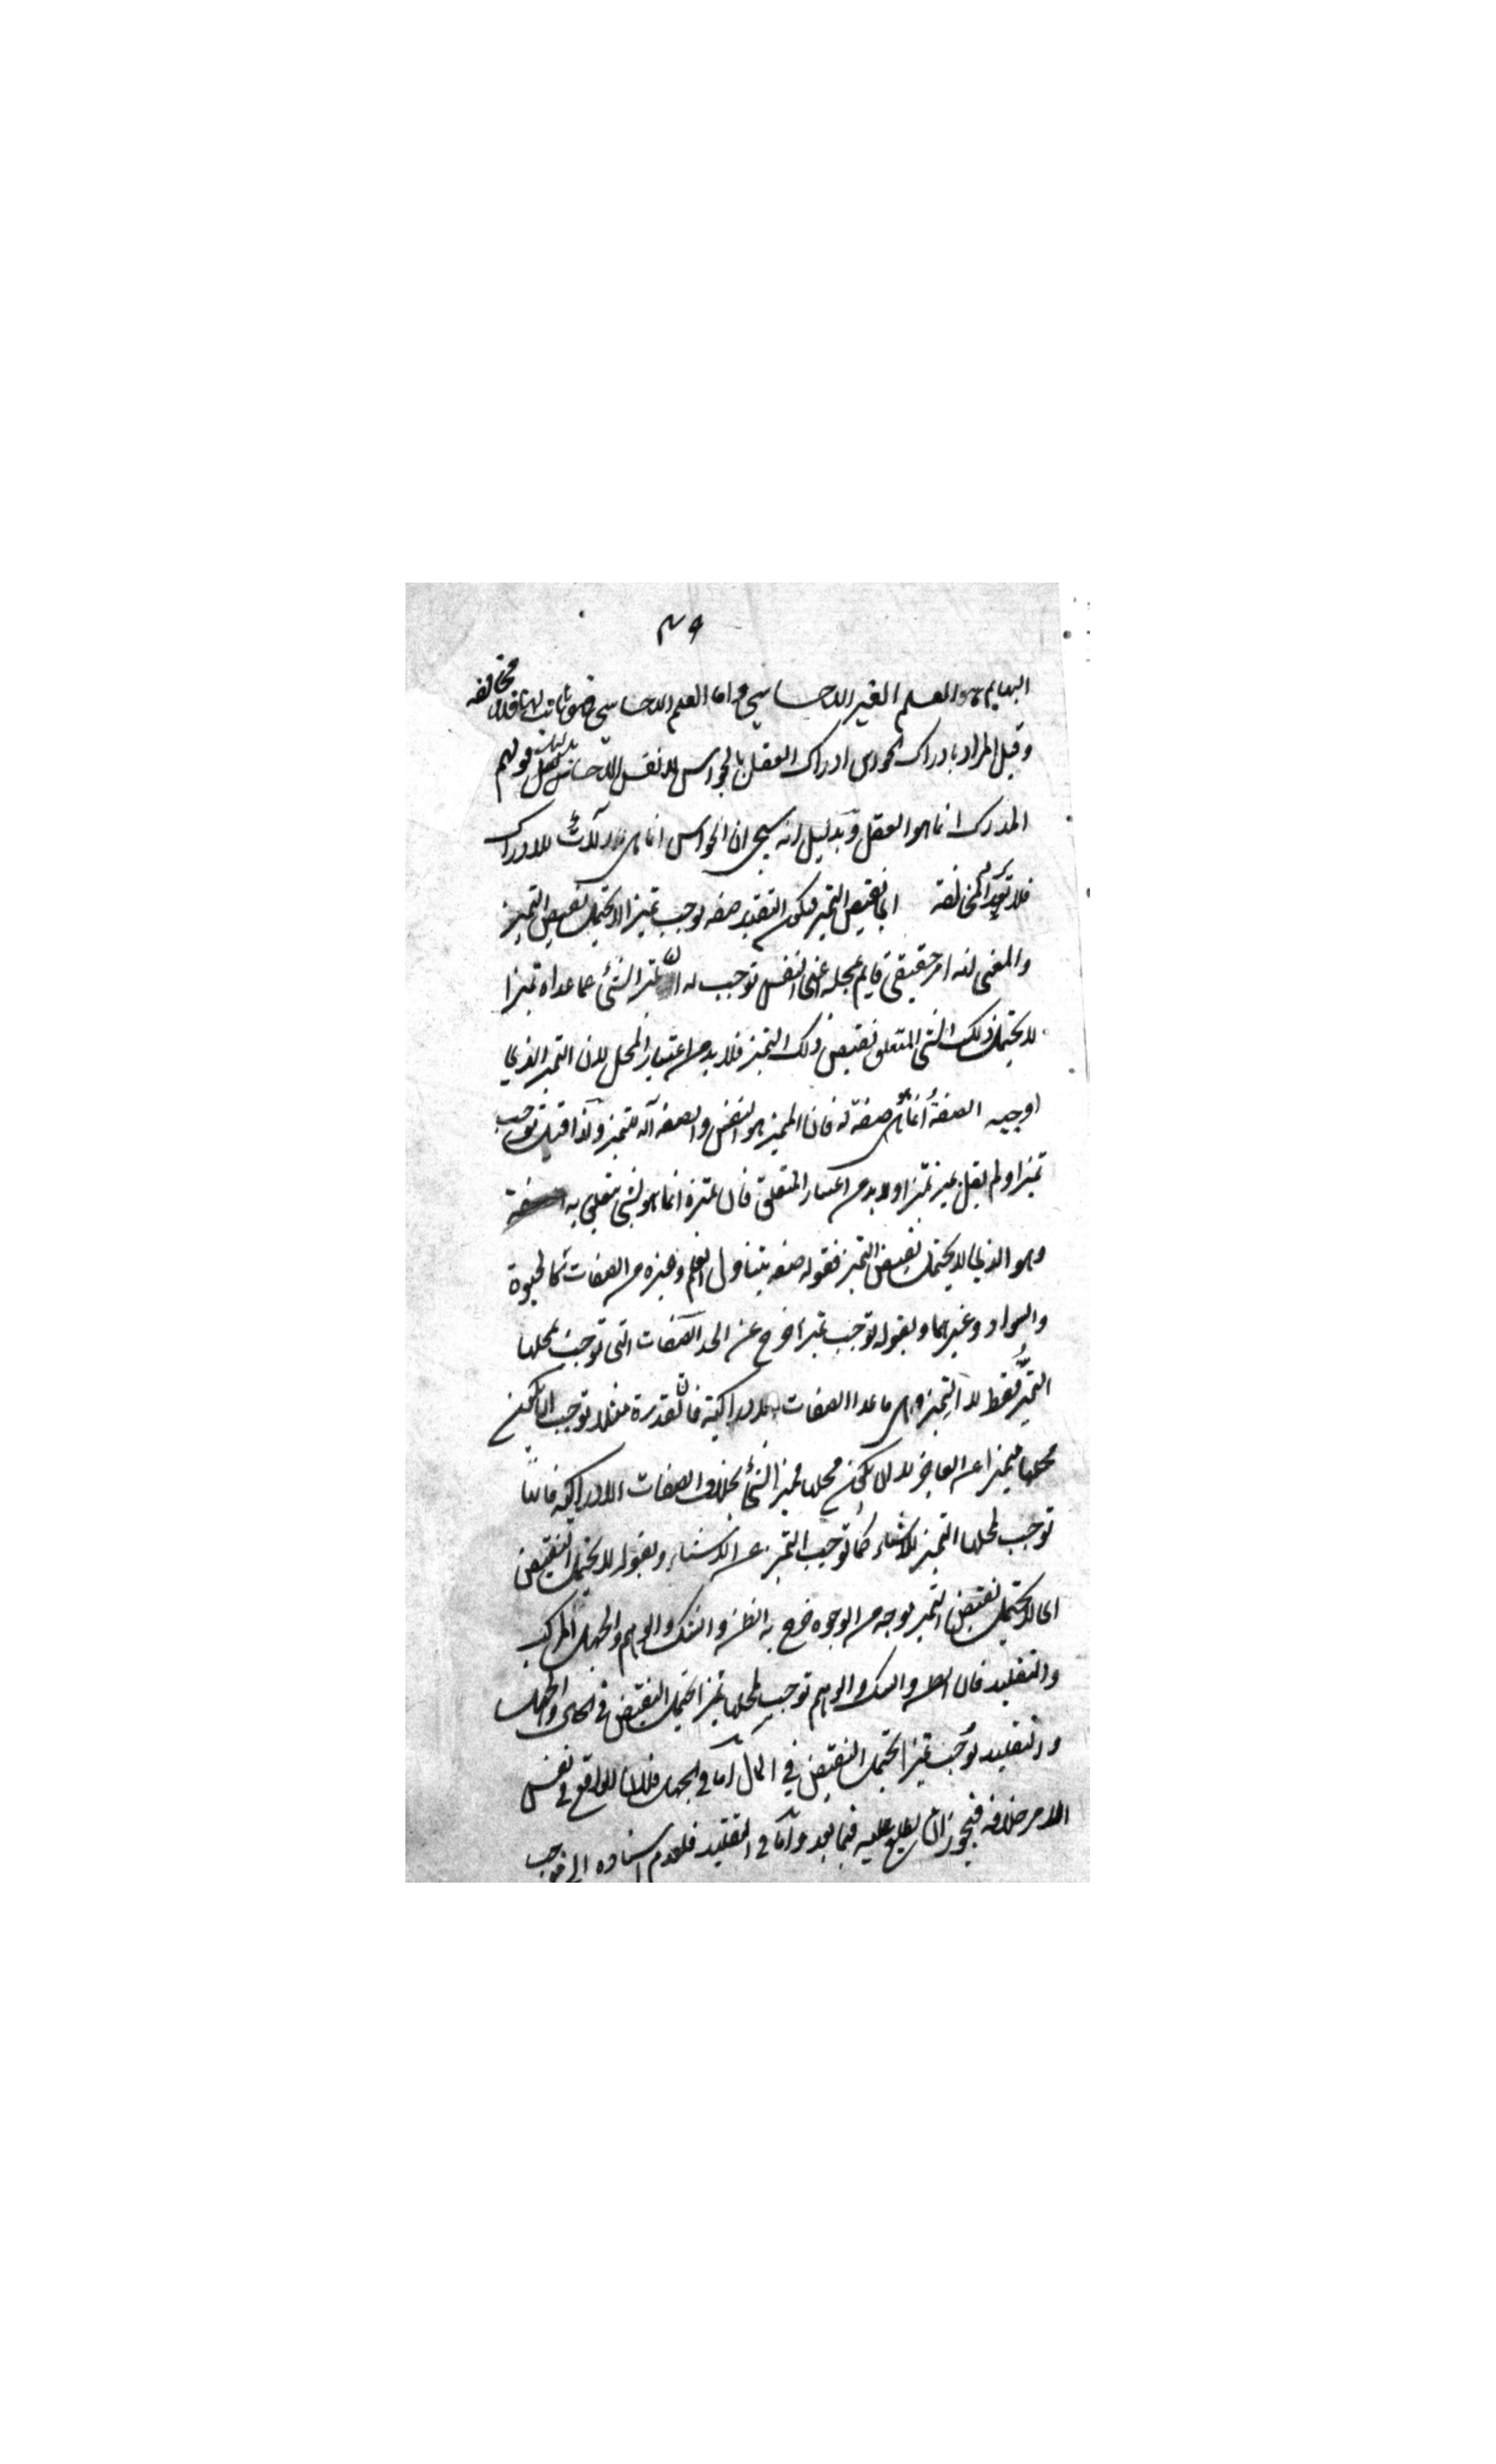 ٤٩
البهايم هو العلم الغير الاحساسي واما العلم الاحساسي فهو ثابت لها فلا مخالفه
وقيل المراد بادراك الحواس ادراك العقل بالحواس لا نفس الاحساس بدليل قولهم
المدرك انما هو العقل وبدليل انه سيجئ ان الحواس انما هي آلات للادراك
فلا يرد المخالفة اي نقيض التميز فيكون التقدير صفه توجب تميزا لا يحتمل نقيض التميز
والمعنى انه امر حقيقي قايم بمحله اعنى النفس توجب له ان تميز الشئ عما عداه تميزا
لا يحتمل ذلك الشئ المتعلق نقيض ذلك التميز فلا بد من اعتبار المحل لان التميز الذي
اوجبه الصفة انما هي صفة له فان المميز هو النفس والصفه آله للتميز ولذا قيل توجب
تميزا ولم يقل يميز تميزا ولا بد من اعتبار المتعلق فان تميزه انما هو لشئ يتعلق به
وهو الذي لا يحتمل نقيض التميز فقوله صفه يتناول العلم وغيره من الصفات كالحيوة
والسواد وغيرهما وبقوله توجب تميزا خرج عن الحد الصفات التى توجب لمحلها
التميّز فقط لا التميز وهي ما عدا الصفات الادراكية فان القدرة مثلا توجب ان يكون
محلها متميزا عن العاجز لا ان يكون محلها مميز الشئ بخلاف الصفات الادراكيه فانها
توجب لمحلها التميز للاشياء كما توجب التميز عن الاشياء وبقوله لا يحتمل النقيض
اي لا يحتمل نقيض التميز بوجه من الوجوه خرج به الظن والشك والوهم والجهل المركب
والتقليد فان الظن والشك والوهم توجب لمحلها تميزا يحتمل النقيض في الحال والجهل
والتقليد يوجب تميزا يحتمل النقيض في المآل اما في الجهل فلان الواقع في نفس
الامر خلافه فيجوز ان يطلع عليه فيما بعد واما في التقليد فلعدم اسناده الى موجب